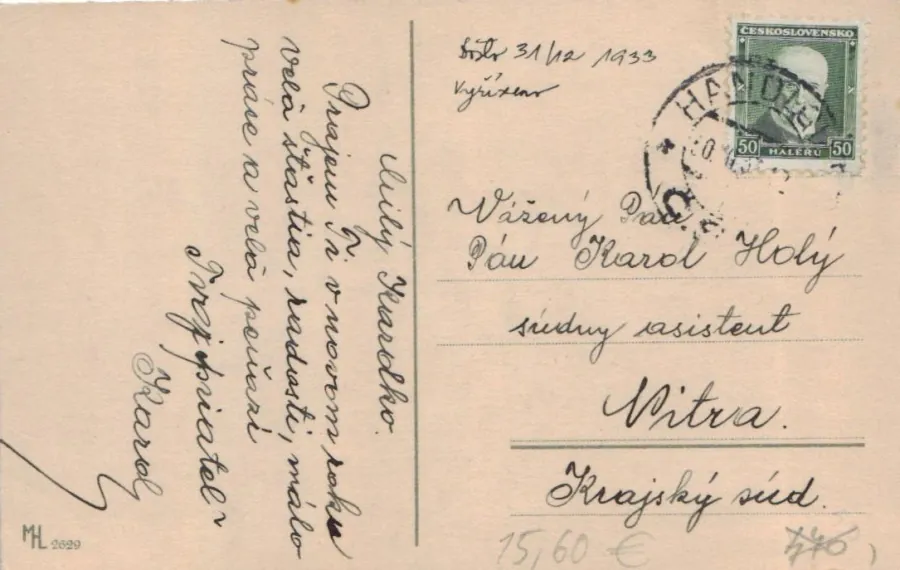 Milý Karolko.
Prajem Ti v novom roku
velà štastia, radosti, málo
práce a velà peňazí
Tvoj priatel
Karol
MHL 2629
Došlo 31/12 1933
Vyřízeno
ČESKOSLOVENSKO
50 HALÉŘŮ 50
HANDL
Vážený Pán
Pán Karol Holý
súdny asistent
Nitra.
Krajský súd.
15,60 €